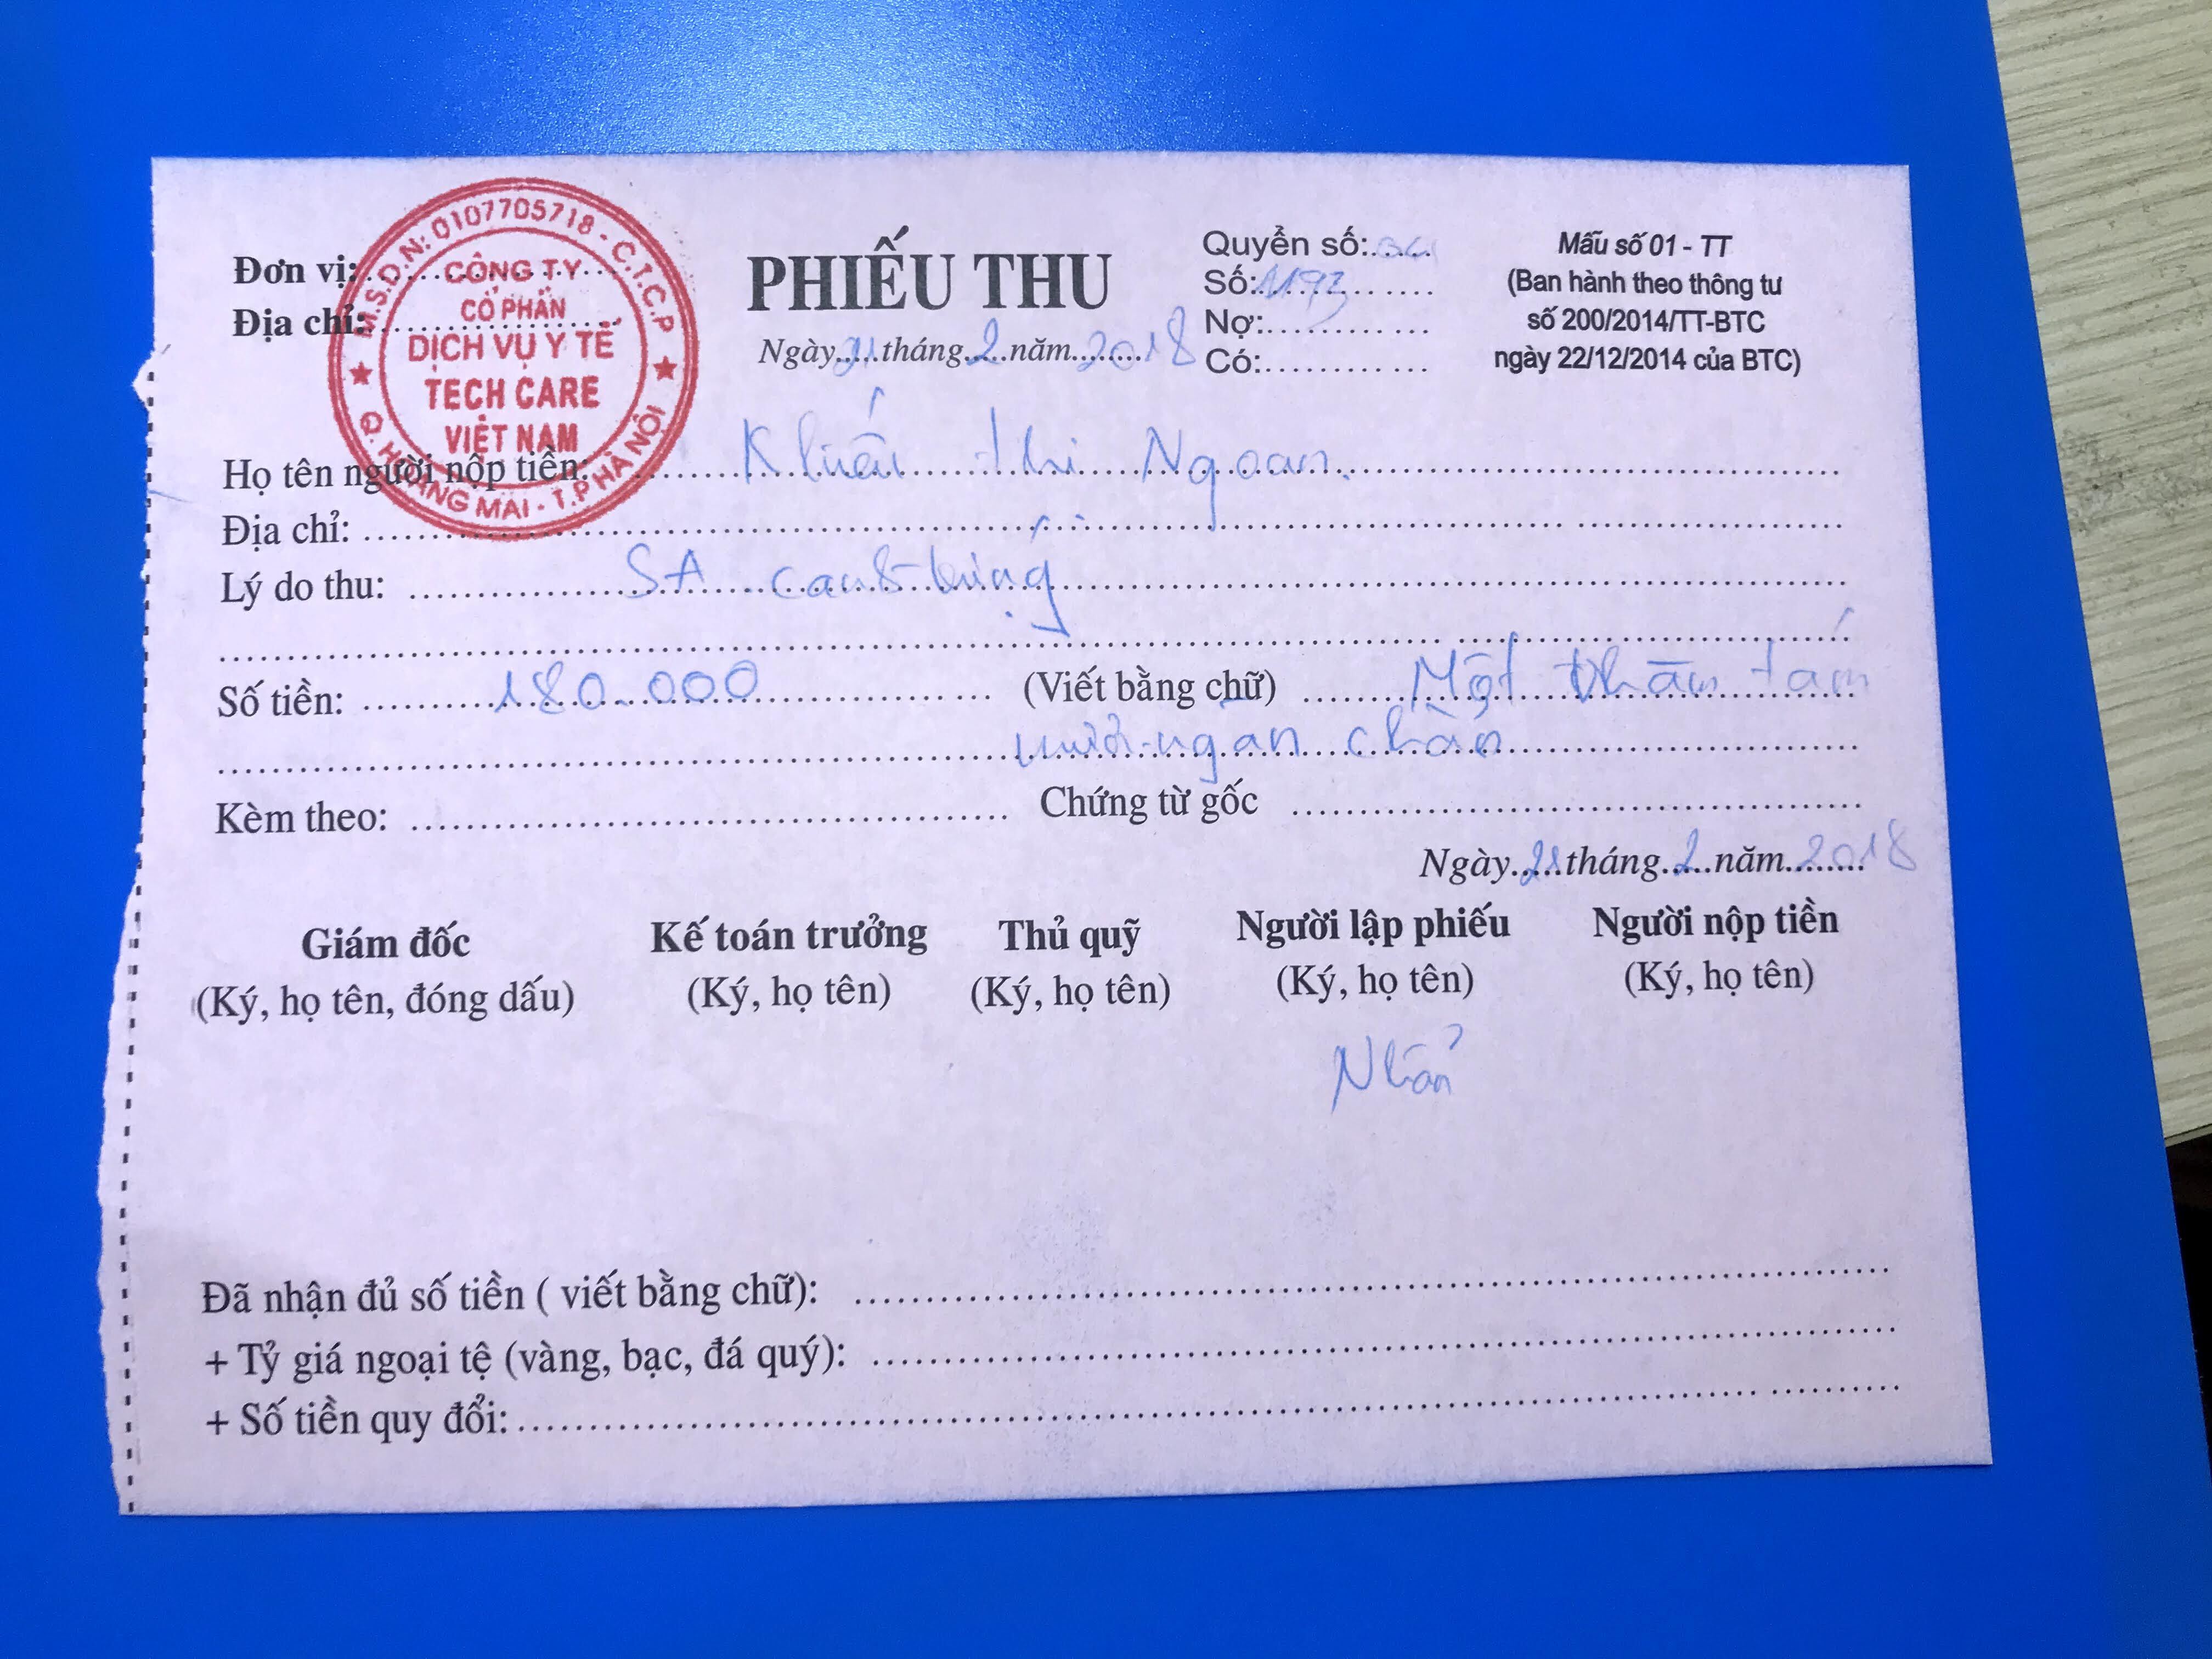 Đơn vị:
Địa chỉ:
M.S.D.N: 0107705718 - C.T.C.P
CÔNG TY
CỔ PHẦN
DỊCH VỤ Y TẾ
TECH CARE
VIỆT NAM
MAI - T.P HÀ NỘI
PHIẾU THU
Ngày 21 tháng 2 năm 2018
Quyển số:
Số:
Nợ:
Có:
Mẫu số 01 - TT
(Ban hành theo thông tư
số 200/2014/TT-BTC
ngày 22/12/2014 của BTC)
Họ tên người nộp tiền Khiếu Thị Ngoan
Địa chỉ:
Lý do thu: SA
Số tiền: 180.000 (Viết bằng chữ) Một trăm tám
mươi ngàn chẵn
Kèm theo: Chứng từ gốc
Ngày 21 tháng 2 năm 2018
Giám đốc Kế toán trưởng Thủ quỹ Người lập phiếu Người nộp tiền
((Ký, họ tên, đóng dấu) (Ký, họ tên) (Ký, họ tên) (Ký, họ tên) (Ký, họ tên)
Đã nhận đủ số tiền ( viết bằng chữ):
+ Tỷ giá ngoại tệ (vàng, bạc, đá quý):
+ Số tiền quy đổi: